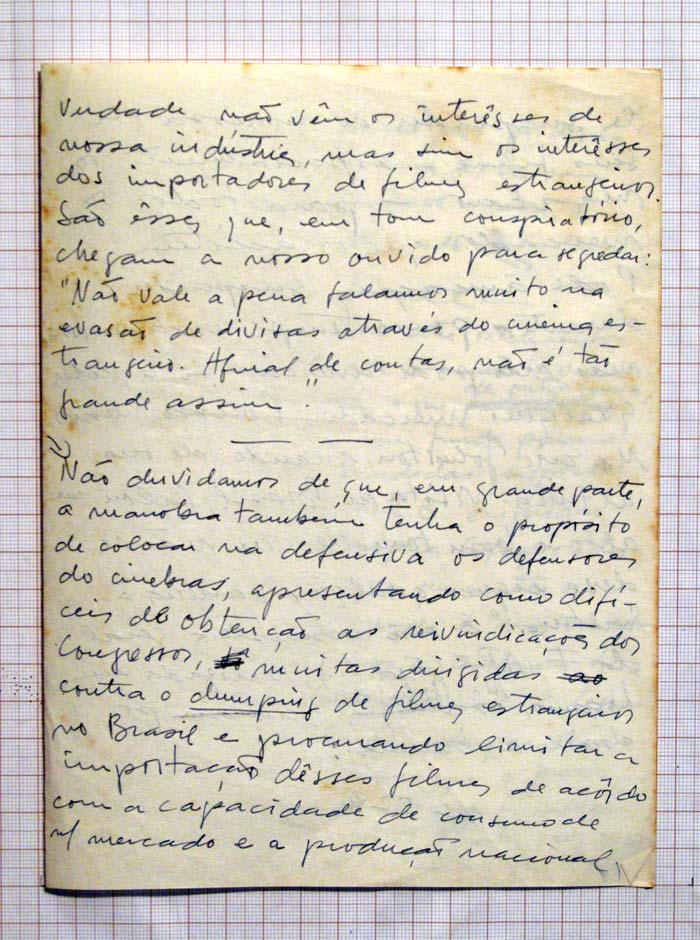 verdade não vêm os interêsses de
nossa indústria, mas sim os interêsses
dos importadores de filmes estrangeiros.
São êsses que, em tom conspiratório,
chegam a nosso ouvido para segredar:
"Não vale a pena falarmos muito na
evasão de divisas através do cinema es-
trangeiro. Afinal de contas, não é tão
grande assim."
Não duvidamos de que, em grande parte,
a manobra também tenha o propósito
de colocar na defensiva os defensores
do cinebras, apresentando como difí-
ceis de obtenção as reivindicações dos
Congressos, muitas dirigidas
contra o dumping de filmes estrangeiros
no Brasil e procurando limitar a
importação dêsses filmes de acôrdo
com a capacidade de consumo de
n/ mercado e a produção nacional,